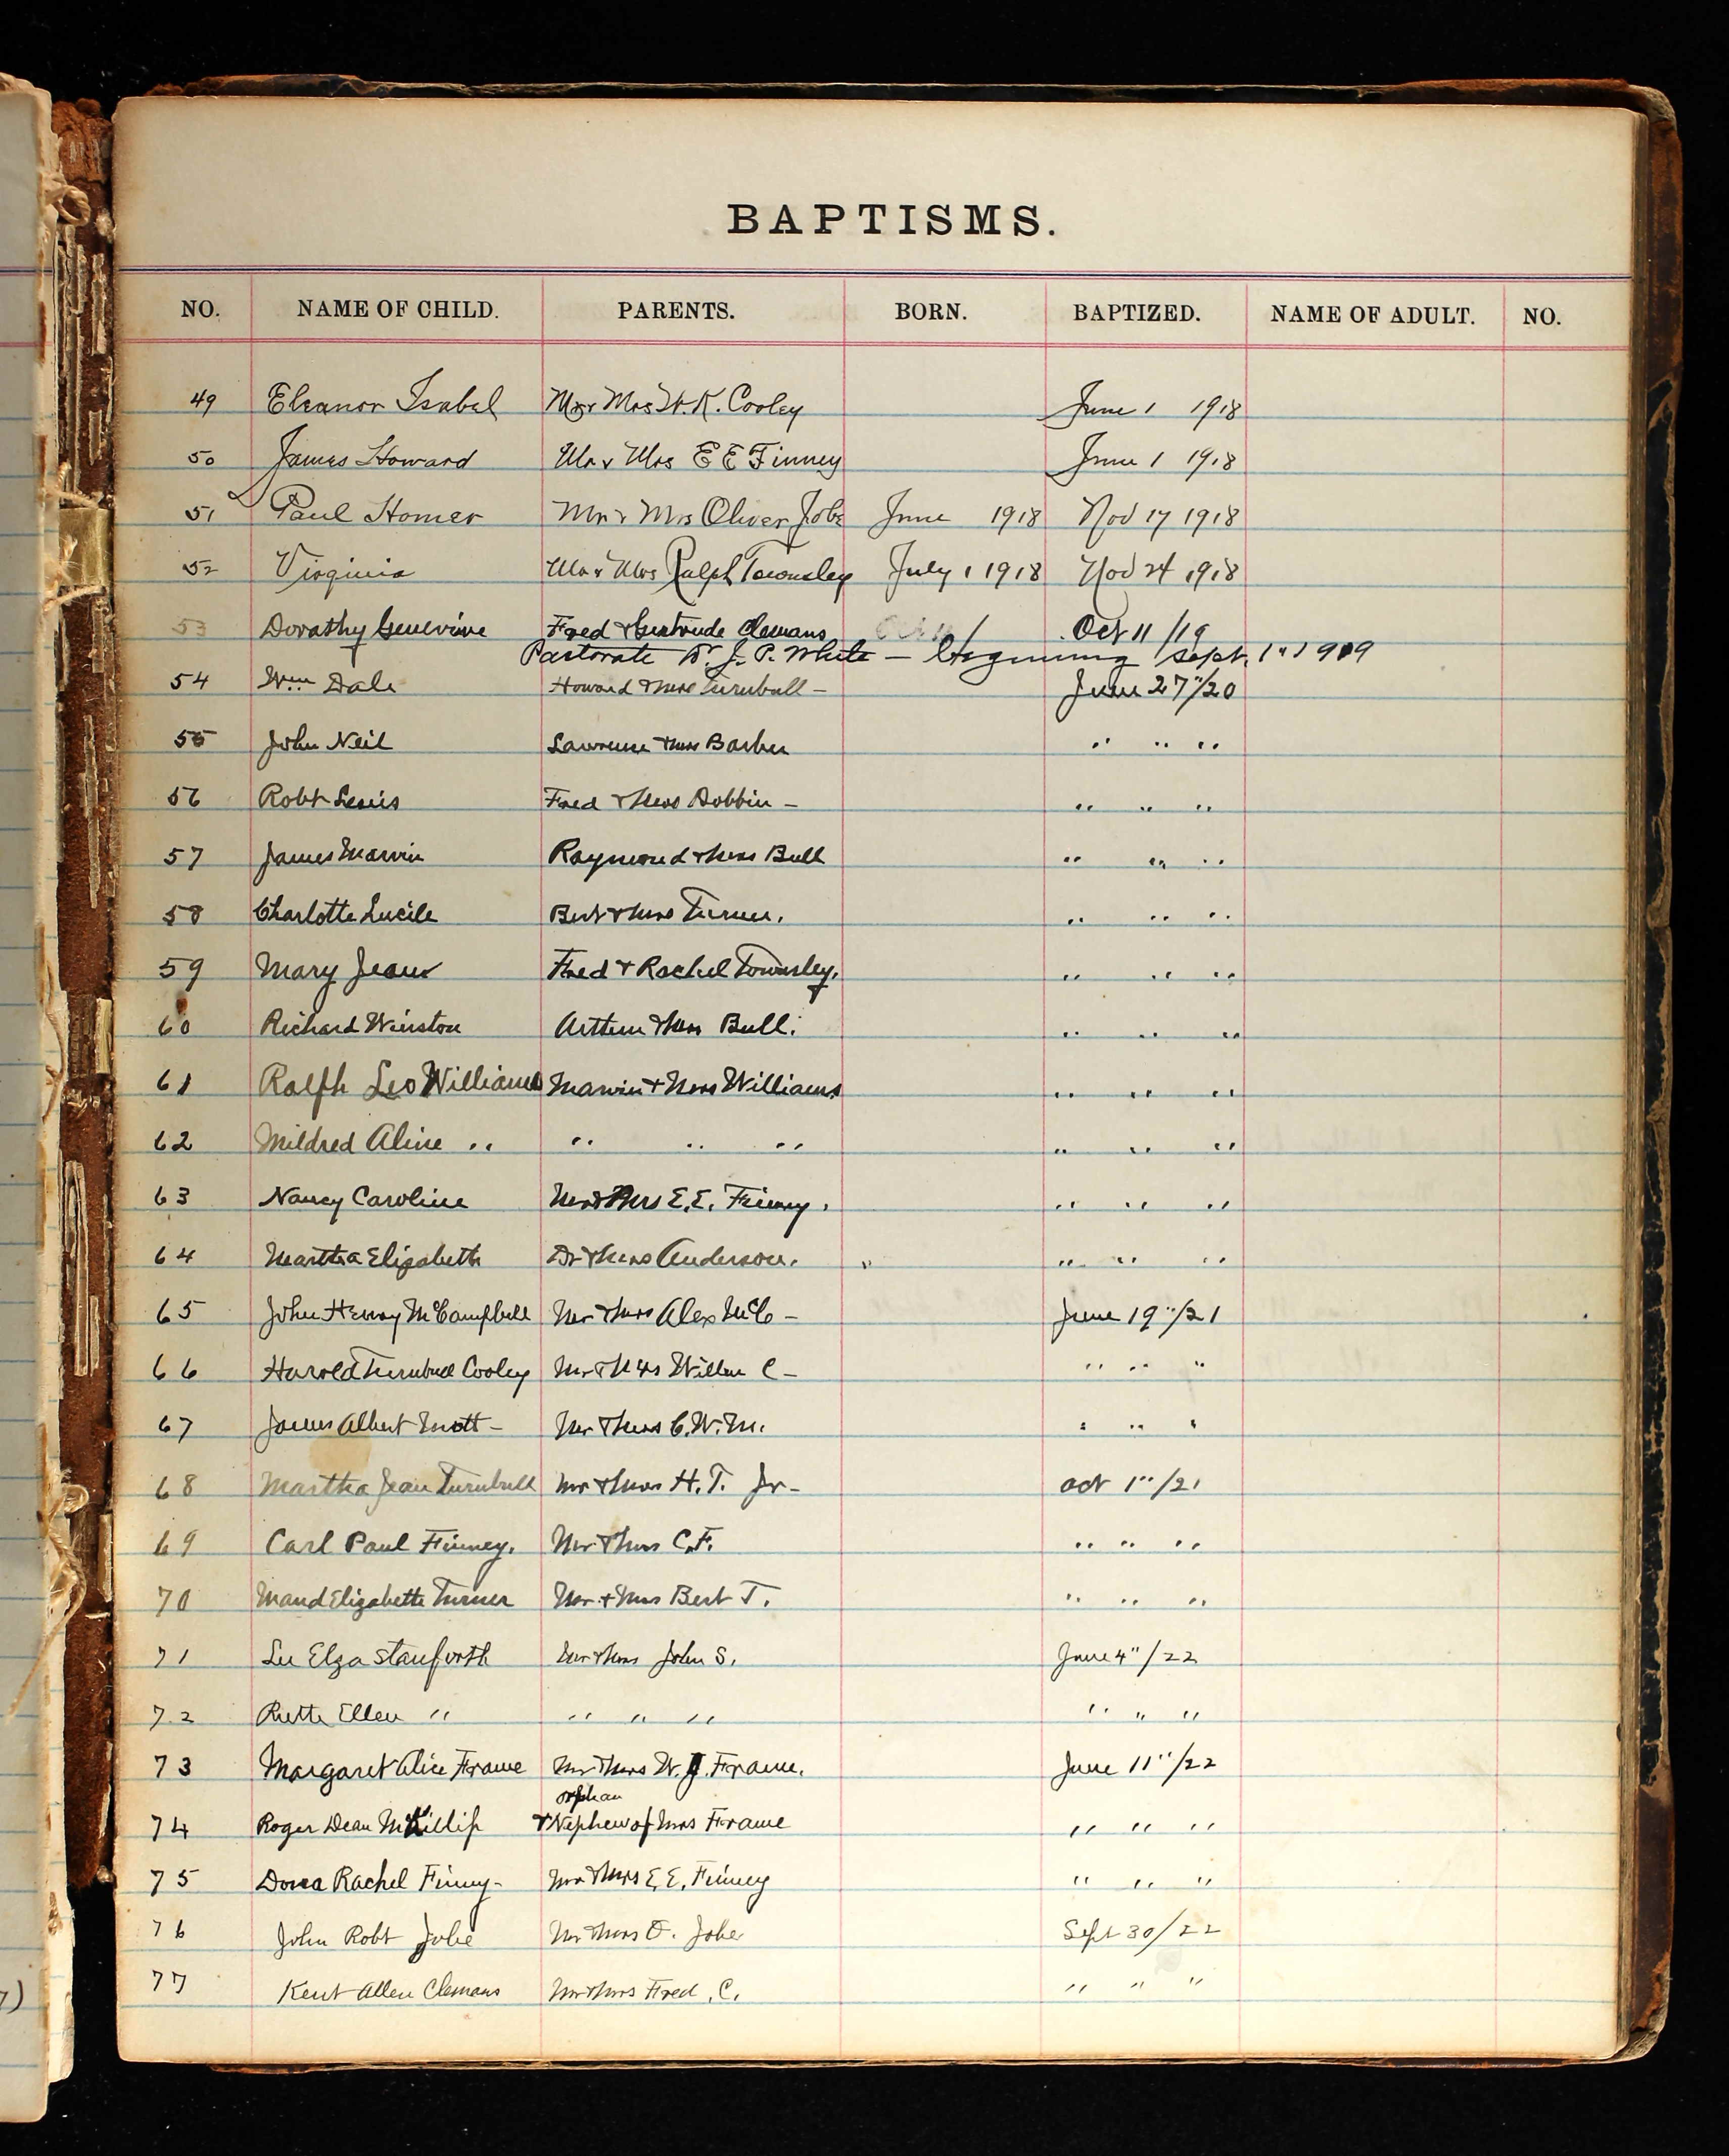 BAPTISMS.
NO. NAME OF CHILD. PARENTS. BORN. BAPTIZED. NAME OF ADULT. NO.
49 Eleanor Isabel Mr & Mrs W. K. Cooley June 1 1918
50 James Howard Mr & Mrs E E Finney June 1 1918
51 Paul Homer Mr & Mrs Oliver Jobe June 1918 Nov 17 1918
52 Virginia Mr & Mrs Ralph Townsley July 1 1918 Nov 24 1918
53 Dorathy Genevive Fred & Gertrude Clemans Oct 11 / Oct 11 /19
Pastorate Dr. J. P. White — Beginning Sept. 1" 1919
54 Wm Dale Howard & Mrs Turnbull – June 27"/20
55 John Neil Lawrence & Mrs Barber " " "
56 Robt Lewis Fred & Mrs Dobbin – " " "
57 James Marvin Raymond & Mrs Bull " " "
58 Charlotte Lucile Bert & Mrs Turner. " " "
59 Mary Jean Fred & Rachel Townsley. " " "
60 Richard Winston Arthur & Mrs Bull. " " "
61 Ralph Leo Williams Marvin & Mrs Williams " " "
62 Mildred Aline " " " " " " "
63 Nancy Caroline Mr & Mrs E. E. Finney. " " "
64 Martha Elizabeth Dr & Mrs Anderson. " " " "
65 John Henry McCampbell Mr & Mrs Alex McC – June 19"/21
66 Harold Turnbull Cooley Mr & Mrs C – " " "
67 James Albert Mott – Mr & Mrs C. W. M. " " "
68 Martha Jean Turnbull Mr & Mrs H. T. Jr – Oct 1"/21
69 Carl Paul Finney. Mr & Mrs C. F. " " "
70 Maud Elizabeth Turner Mr & Mrs Bert T. " " "
71 Elza Stanforth Mr & Mrs John S. June 4"/22
72 Ruth Ellen " " " " " " "
73 Margaret Alice Frame Mr & Mrs W. J. Frame. June 11"/22
orphan
74 Roger Dean McKillip & Nephew of Mrs Frame " " "
75 Rachel Finney – Mr & Mrs E. E. Finney " " "
76 John Robt Jobe Mr & Mrs O. Jobe Sept 30/22
77 Kent Allen Clemans Mr & Mrs Fred. C. " " "